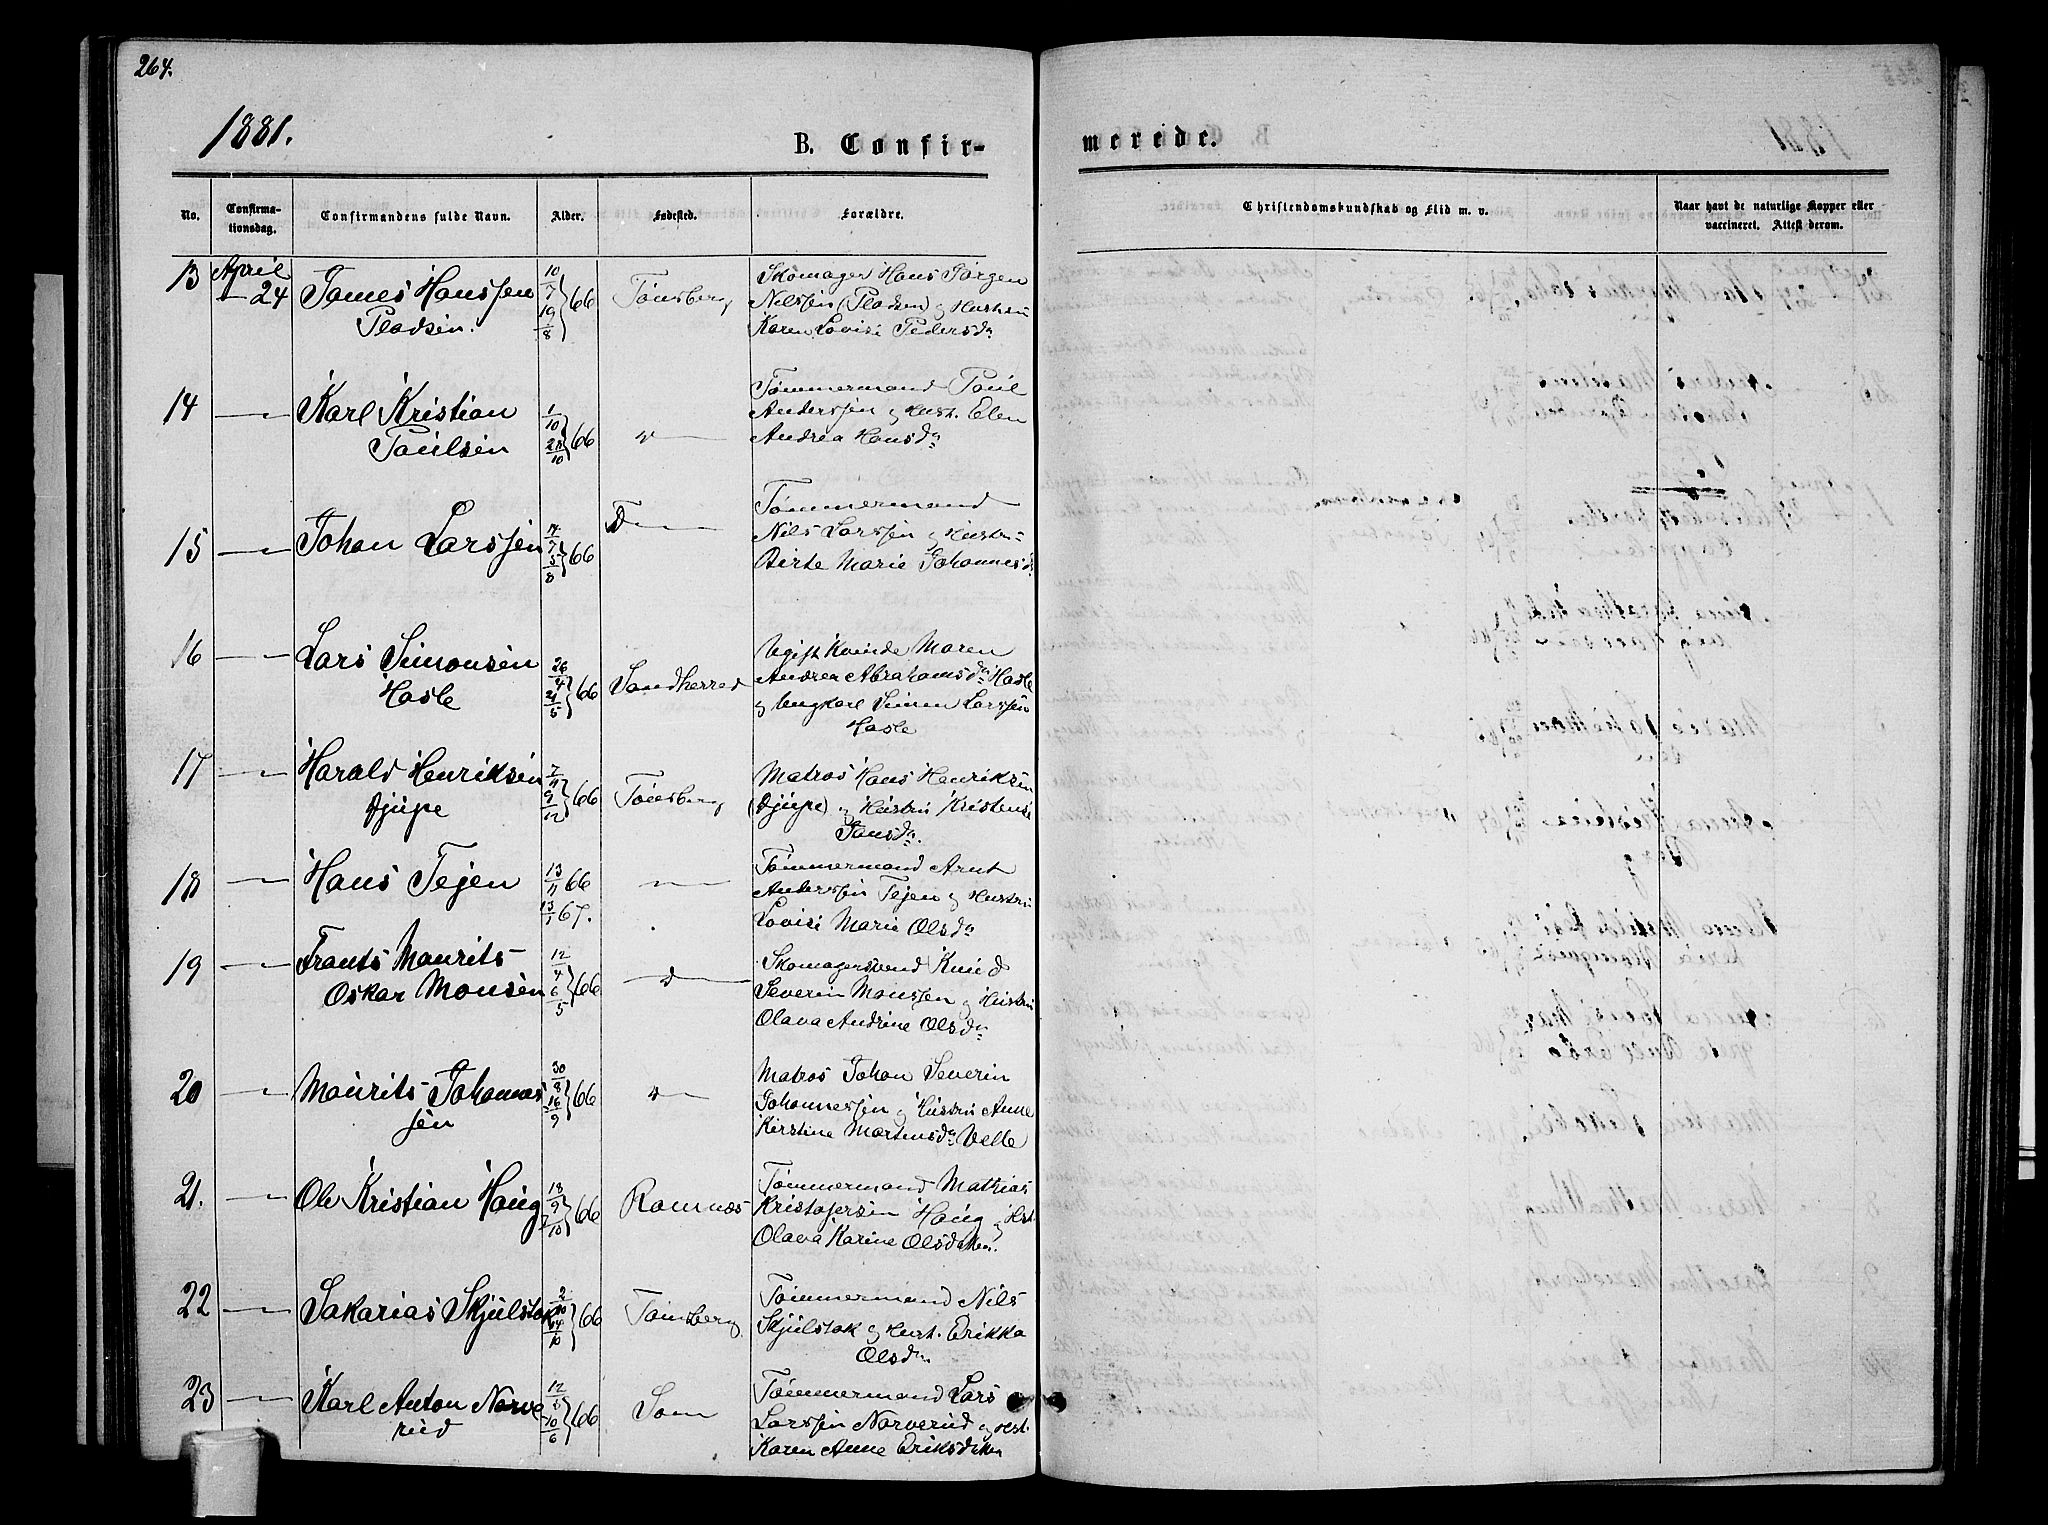 264.
1881.
B. Confir-
merede.
No.
Confirma-
tionsdag.
Confirmandens fulde Navn.
Alder.
Fødested.
Forældre.
Christendomskundskab og Flid m. v.
Naar havt de naturlige Kopper eller
vaccineret. Attest derom.
13 April 24 James Hanssen 10/7 19/8 } 66 Tønsberg Skomager Hans Jørgen
Pladsen. Nilssen (Pladsen) og Hustru
Karen Lovise Pedersdr
14 — Karl Kristian 1/10 /10 } 66 " — Tømmermand Paul
Paulsen Anderssen og Hust. Elen
Andrea Hansdr
15 — Johan Larssen /7 5/8 } 66 Tømmermand
Nils Larssen og Hustru
Birte Marie Johannesdr
16 — Lars Simonsen 26/4 21/5 } 66 Sandherred Ugift Kvinde Maren
Hasle Andrea Abrahamsdr Hasle
og Ungkarl Simen Larssen
Hasle
17 — Harald Henriksen 7/11 9/12 } 66 Tønsberg Matros Hans Henriksen
Djupe (Djupe) og Hustru Kristense
Jansdr.
18 — Hans Tejen 13/11 66 — " — Tømmermand Arnt
13/1 67. Anderssen Tejen og Hustru
Lovise Marie Olsdr
19 — Frants Maurits 12/4 6/5 } 66 — " — Skomagersvend Knud
Oskar Monsen Severin Monssen og Hustru
Olava Andrine Olsdr
20 — Maurits Johannes- 30/8 16/9 } 66 " — Matros Johan Severin
sen Johannessen og Hustru Anne
Kirstine Martensdr Velle
21. — Ole Kristian Haug 18/9 7/10 } 66 Ramnæs Tømmermand Mathias
Kristofersen Haug og Hst.
Olava Karine Olsdatter.
22 — Sakarias Skjulstok 2/10 /10 } 66 Tønsberg Tømmermand Nils
Skjulstok og Hust. Erikka
Olsdr
23 — Karl Anton Narve- 12/5 10/6 } 66 Sem Tømmermand Lars
rud Larssen Narverud og Hst.
Karen Anne Eriksdatter